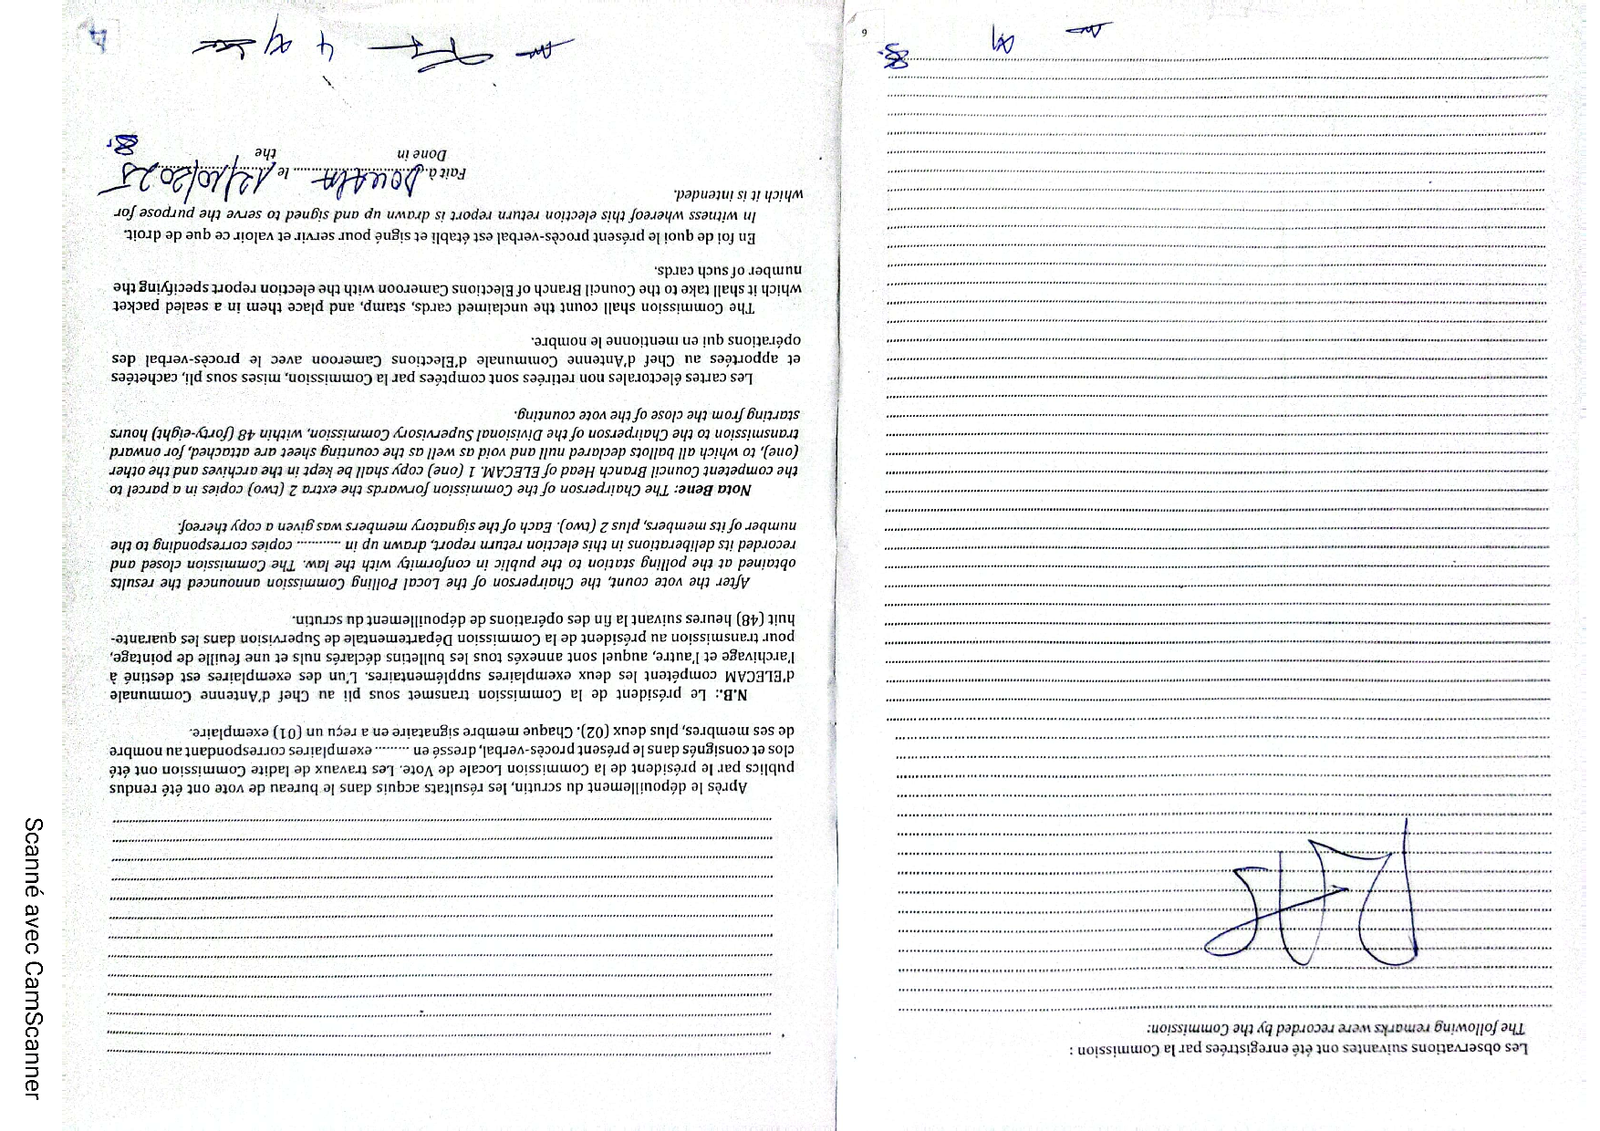 Les observations suivantes ont été enregistrées par la Commission :
The following remarks were recorded by the Commission:
6
Après le dépouillement du scrutin, les résultats acquis dans le bureau de vote ont été rendus
publics par le président de la Commission Locale de Vote. Les travaux de ladite Commission ont été
clos et consignés dans le présent procès-verbal, dressé en ......... exemplaires correspondant au nombre
de ses membres, plus deux (02). Chaque membre signataire en a reçu un (01) exemplaire.
N.B.: Le président de la Commission transmet sous pli au Chef d'Antenne Communale
d'ELECAM compétent les deux exemplaires supplémentaires. L'un des exemplaires est destiné à
l'archivage et l'autre, auquel sont annexés tous les bulletins déclarés nuls et une feuille de pointage,
pour transmission au président de la Commission Départementale de Supervision dans les quarante-
huit (48) heures suivant la fin des opérations de dépouillement du scrutin.
After the vote count, the Chairperson of the Local Polling Commission announced the results
obtained at the polling station to the public in conformity with the law. The Commission closed and
recorded its deliberations in this election return report, drawn up in ........... copies corresponding to the
number of its members, plus 2 (two). Each of the signatory members was given a copy thereof.
Nota Bene: The Chairperson of the Commission forwards the extra 2 (two) copies in a parcel to
the competent Council Branch Head of ELECAM. 1 (one) copy shall be kept in the archives and the other
(one), to which all ballots declared null and void as well as the counting sheet are attached, for onward
transmission to the Chairperson of the Divisional Supervisory Commission, within 48 (forty-eight) hours
starting from the close of the vote counting.
Les cartes électorales non retirées sont comptées par la Commission, mises sous pli, cachetées
et apportées au Chef d'Antenne Communale d'Elections Cameroon avec le procès-verbal des
opérations qui en mentionne le nombre.
The Commission shall count the unclaimed cards, stamp, and place them in a sealed packet
which it shall take to the Council Branch of Elections Cameroon with the election report specifying the
number of such cards.
En foi de quoi le présent procès-verbal est établi et signé pour servir et valoir ce que de droit.
In witness whereof this election return report is drawn up and signed to serve the purpose for
which it is intended.
Fait à Douala le 12/10/2025
Done in the
Scanné avec CamScanner